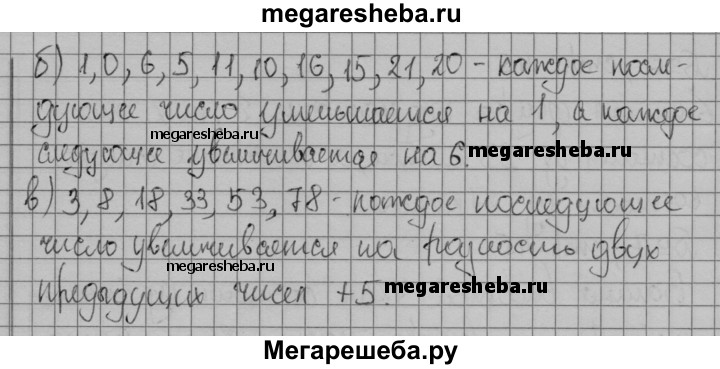 megaresheba.ru
б) 1, 0, 6, 5, 11, 10, 16, 15, 21, 20 - каждое после-
дующее число уменьшается на 1, а каждое
megaresheba.ru
следующее увеличивается на 6. megaresheba.ru
в) 3, 8, 18, 33, 53, 78 - каждое последующее
число увеличивается на разность двух
megaresheba.ru
предыдущих чисел +5. megaresheba.ru
Мегарешеба.ру